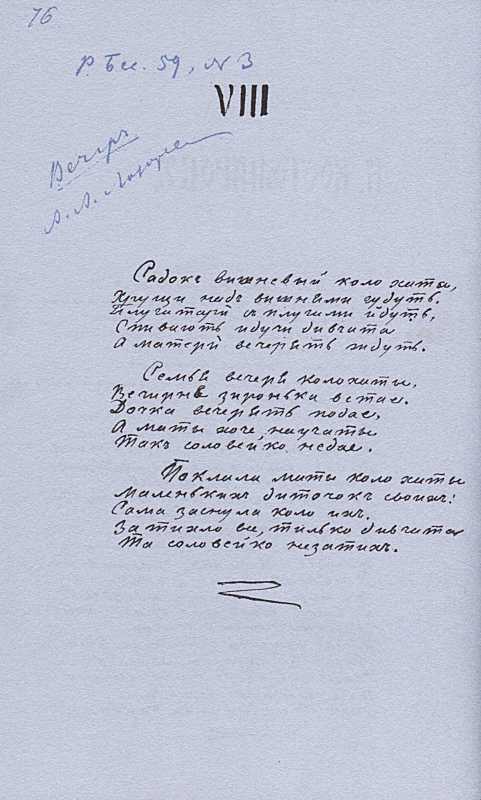 76
Р. Бес. 59, N 3
VIII
Вечір
Садокъ вишневый коло хаты,
Хрущи надъ вишнями гудуть.
Плугатари съ плугами йдуть,
Спивають идучи дивчата
А матери вечерять ждуть.
Семья вечеря коло хаты,
Вечирня зиронька встае.
Дочка вечерять подае,
А маты хоче научаты
Такъ соловейко недае.
Поклала маты коло хаты
Маленькихъ диточокъ своихъ:
Сама заснула коло ихъ.
Затихло все, тилько дивчата
Та соловейко незатихъ.